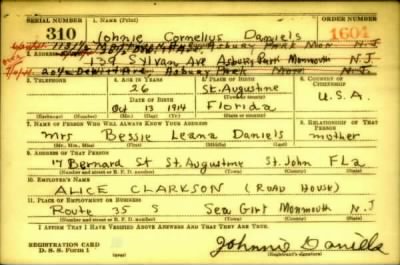 SERIAL NUMBER 1. NAME (Print) ORDER NUMBER
310 Johnie Cornelius Daniels 1604
Asbury Park Mon N.J.
139 Sylvan Ave Asbury Park Monmouth N.J.
Asbury Park Mon N.J.
3. TELEPHONE 4. AGE IN YEARS 5. PLACE OF BIRTH 6. COUNTRY OF CITIZENSHIP
26 St. Augustine
DATE OF BIRTH U.S.A.
Oct 13 1914 Florida
7. NAME OF PERSON WHO WILL ALWAYS KNOW YOUR ADDRESS 8. RELATIONSHIP OF THAT PERSON
Mrs Bessie Leana Daniels mother
(Mr., Mrs., Miss) (First) (Middle) (Last)
9. ADDRESS OF THAT PERSON
17 Bernard St St. Augustine St. John FLa
(Number and street or R. F. D. number) (Town) (County) (State)
10. EMPLOYER'S NAME
ALICE CLARKSON (ROAD HOUSE)
11. PLACE OF EMPLOYMENT OR BUSINESS
Route 35 S Sea Girt Monmouth N.J
(Number and street or R. F. D. number) (Town) (County) (State)
I AFFIRM THAT I HAVE VERIFIED ABOVE ANSWERS AND THAT THEY ARE TRUE.
REGISTRATION CARD
D. S. S. Form 1
Johnnie Daniels
(Registrant's signature)